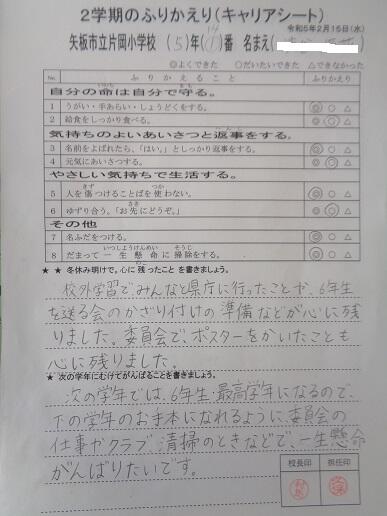 2学期のふりかえり(キャリアシート)
令和5年2月15日(水)
矢板市立片岡小学校 (5)年( )番 名まえ(
◎よくできた ○だいたいできた △できなかった
No. ふりかえること ふりかえり
自分の命は自分で守る。
1 うがい・手あらい・しょうどくをする。 ◎ ○ △
2 給食をしっかり食べる。 ◎ ○ △
気持ちのよいあいさつと返事をする。
3 名前をよばれたら、「はい。」としっかり返事をする。 ◎ ○ △
4 元気にあいさつする。 ◎ ○ △
やさしい気持ちで生活する。
5 人を傷つけることばを使わない。 ◎ ○ △
6 ゆずり合う。「お先にどうぞ。」 ◎ ○ △
その他
7 名ふだをつける。 ◎ ○ △
8 だまって一生懸命に掃除をする。 ◎ ○ △
★ ★ 冬休み明けで、心に残ったことを書きましょう。
校外学習でみんなと県庁に行ったことや、6年生
を送る会のかざり付けの準備などが心に残
りました。委員会で、ポスターをかいたことも
心に残りました。
★ 次の学年にむけてがんばることを書きましょう。
次の学年では、6年生・最高学年になるので、
下の学年のお手本になれるように委員会の
仕事やクラブ、清掃のときなどで、一生懸命
がんばりたいです。
校長印 担任印